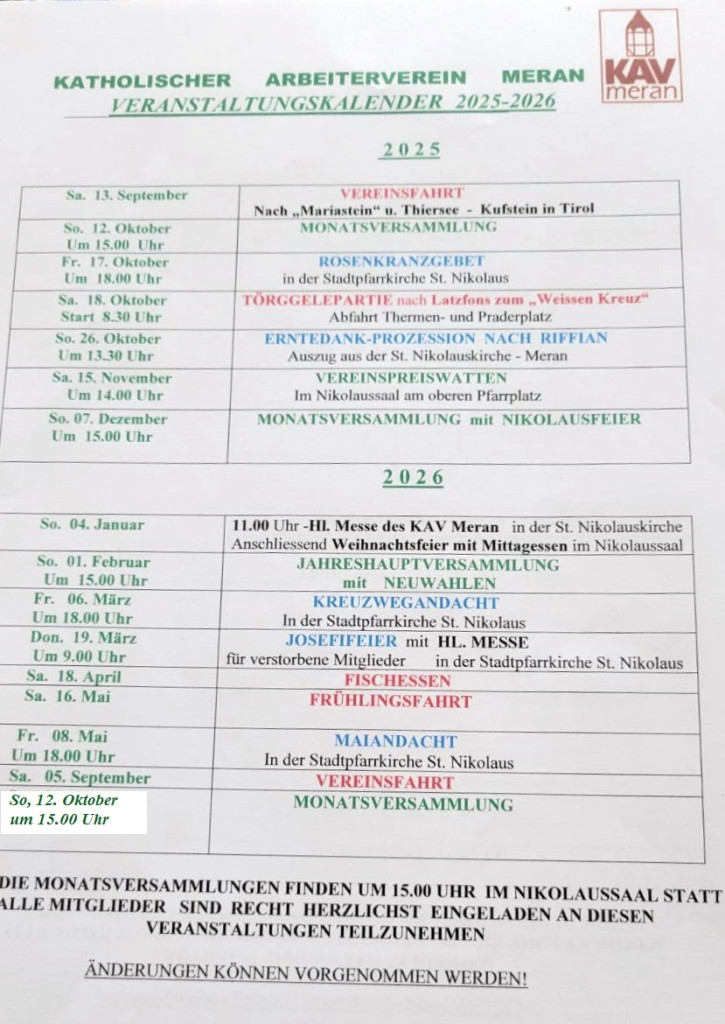 KAV
meran
KATHOLISCHER ARBEITERVEREIN MERAN
VERANSTALTUNGSKALENDER 2025-2026
2025
Sa. 13. September VEREINSFAHRT
Nach „Mariastein“ u. Thiersee - Kufstein in Tirol
So. 12. Oktober MONATSVERSAMMLUNG
Um 15.00 Uhr
Fr. 17. Oktober ROSENKRANZGEBET
Um 18.00 Uhr in der Stadtpfarrkirche St. Nikolaus
Sa. 18. Oktober TÖRGGELEPARTIE nach Latzfons zum „Weissen Kreuz“
Start 8.30 Uhr Abfahrt Thermen- und Praderplatz
So. 26. Oktober ERNTEDANK-PROZESSION NACH RIFFIAN
Um 13.30 Uhr Auszug aus der St. Nikolauskirche - Meran
Sa. 15. November VEREINSPREISWATTEN
Um 14.00 Uhr Im Nikolaussaal am oberen Pfarrplatz
So. 07. Dezember MONATSVERSAMMLUNG mit NIKOLAUSFEIER
Um 15.00 Uhr
2026
So. 04. Januar 11.00 Uhr -Hl. Messe des KAV Meran in der St. Nikolauskirche
Anschliessend Weihnachtsfeier mit Mittagessen im Nikolaussaal
So. 01. Februar JAHRESHAUPTVERSAMMLUNG
Um 15.00 Uhr mit NEUWAHLEN
Fr. 06. März KREUZWEGANDACHT
Um 18.00 Uhr In der Stadtpfarrkirche St. Nikolaus
Don. 19. März JOSEFIFEIER mit HL. MESSE
Um 9.00 Uhr für verstorbene Mitglieder in der Stadtpfarrkirche St. Nikolaus
Sa. 18. April FISCHESSEN
Sa. 16. Mai FRÜHLINGSFAHRT
Fr. 08. Mai MAIANDACHT
Um 18.00 Uhr In der Stadtpfarrkirche St. Nikolaus
Sa. 05. September VEREINSFAHRT
So, 12. Oktober MONATSVERSAMMLUNG
um 15.00 Uhr
DIE MONATSVERSAMMLUNGEN FINDEN UM 15.00 UHR IM NIKOLAUSSAAL STATT
ALLE MITGLIEDER SIND RECHT HERZLICHST EINGELADEN AN DIESEN
VERANSTALTUNGEN TEILZUNEHMEN
ÄNDERUNGEN KÖNNEN VORGENOMMEN WERDEN!